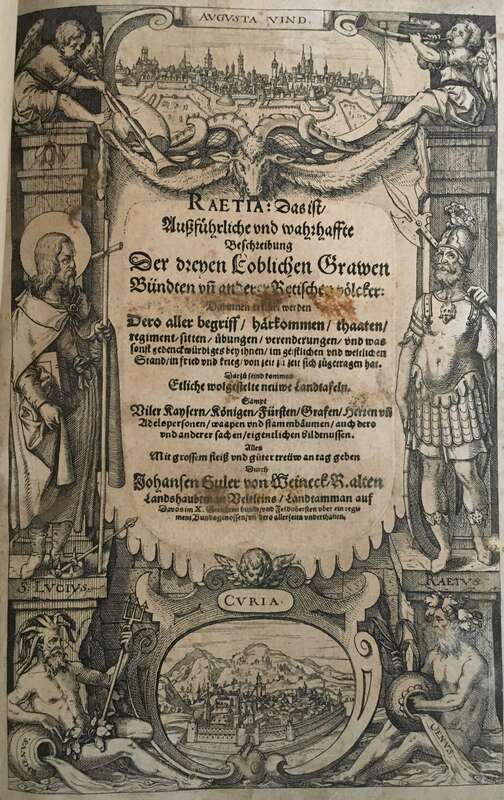 AVGVSTA VIND.
RAETIA: Das ist/
Außführliche vnd wahrhaffte
Beschreibung
Der dreyen Loblichen Grawen
Bündten vñ anderer Retischen völcker:
Darinnen erklärt werden
Dero aller begriff/ härkommen/ thaaten/
regiment, sitten/ übungen/ verenderungen/ vnd was
sonst gedenckwürdiges bey ihnen/ im geistlichen vnd weltlichen
Stand/ in frid vnd krieg/ von zeit zů zeit sich zůgetragen hat.
Darzů sind kommen
Etliche wolgestelte neüwe Landtafeln.
Sampt
Viler Kaysern/ Königen/ Fürsten/ Grafen/ Herren vñ
Adelspersonen/ waapen vnd stammbäumen/ auch dero
vnd anderer sachen/ eigentlichen bildnussen.
Alles
Mit grossem fleiß vnd gůter treüw an tag geben
Durch
Johansen Guler von Weineck. R. alten
Landshaubtman Veltleins/ Landtamman auf
Davos im X. Gerichten bundt/ vnd Feldobersten ober ein regiment
Bundtsgnossen/ vñ dero allerseits vnderthanen.
S. LVCIVS.
RAETVS
CVRIA.
RHENVS
OENVS